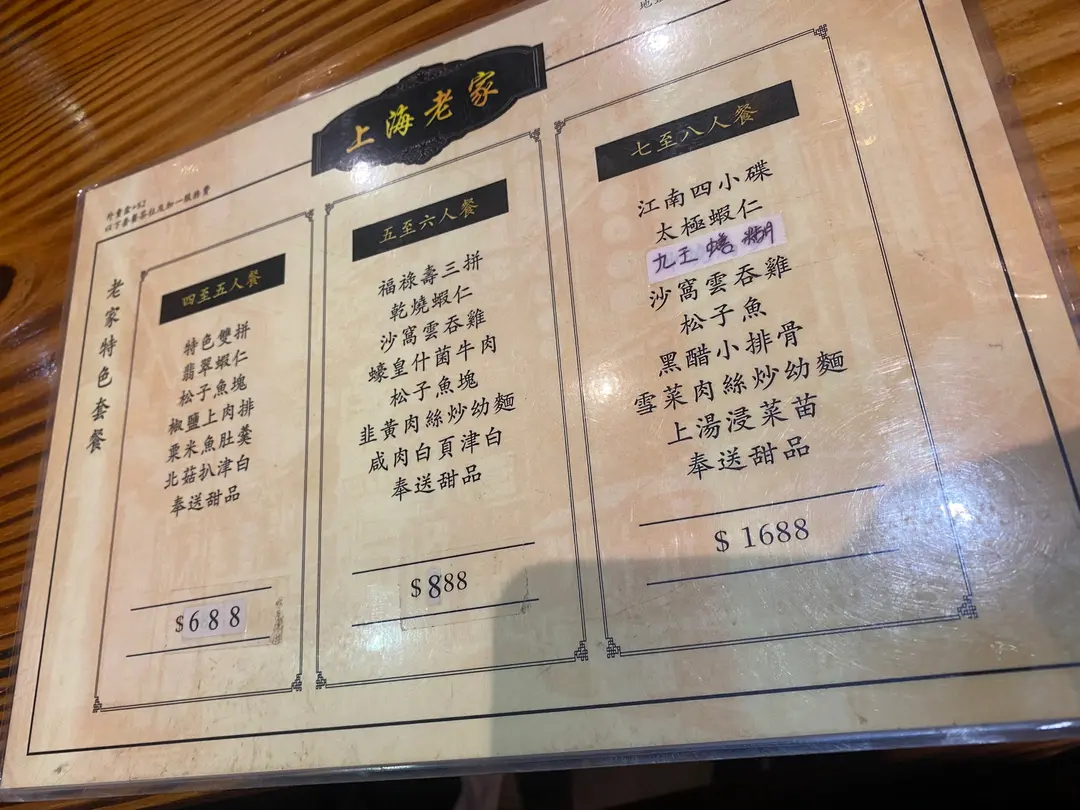 上海老家
外賣盒+$2
以下套餐茶位及加一服務費
老家特色套餐
四至五人餐
特色雙拼
翡翠蝦仁
松子魚塊
椒鹽上肉排
粟米魚肚羹
北菇扒津白
奉送甜品
$688
五至六人餐
福祿壽三拼
乾燒蝦仁
沙窩雲吞雞
蠔皇什菌牛肉
松子魚塊
韭黃肉絲炒幼麵
咸肉白頁津白
奉送甜品
$888
七至八人餐
江南四小碟
太極蝦仁
九王鱔糊
沙窩雲吞雞
松子魚
黑醋小排骨
雪菜肉絲炒幼麵
上湯浸菜苗
奉送甜品
$1688